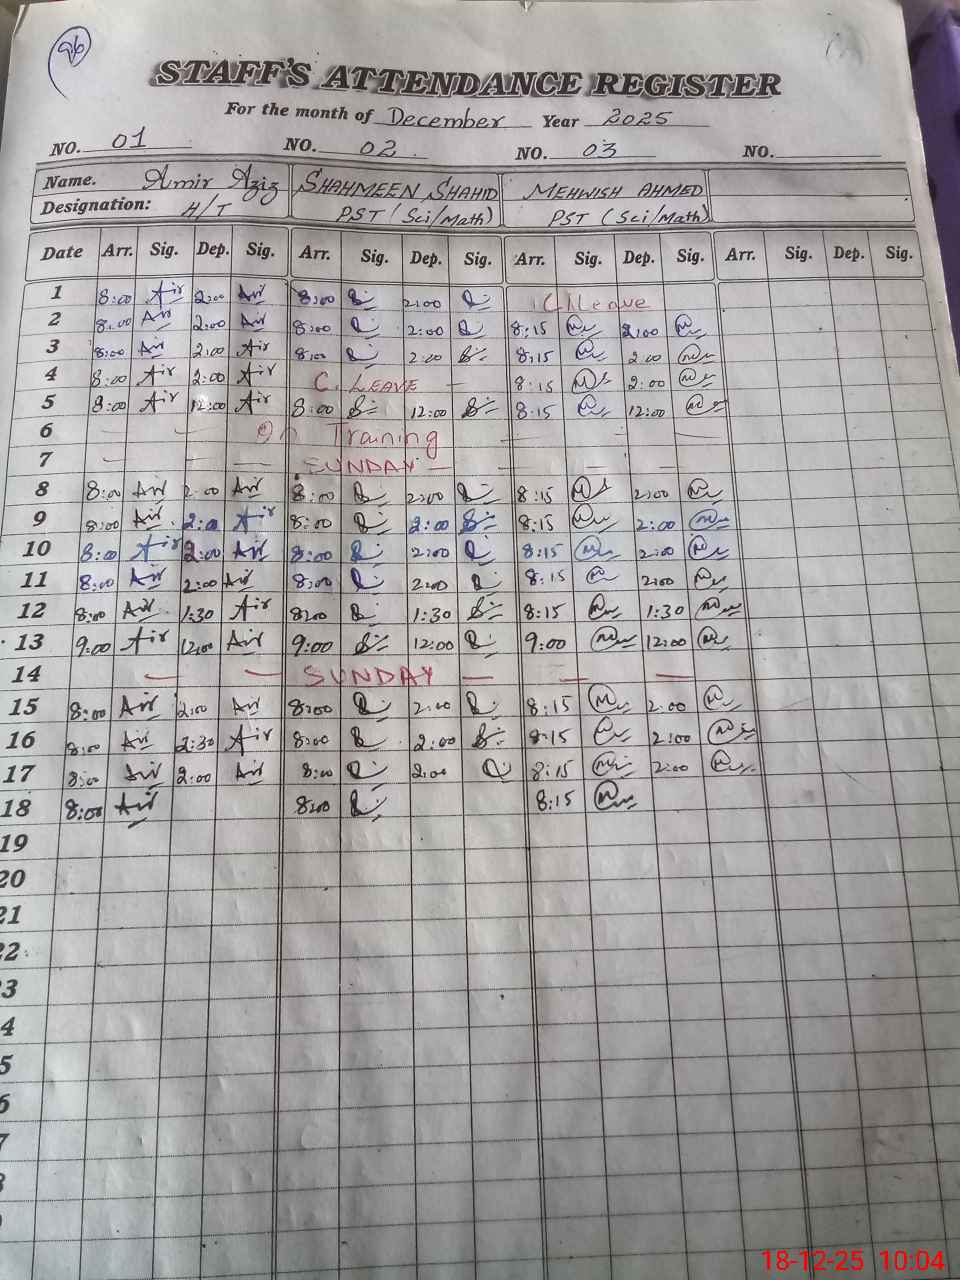 96
STAFF'S ATTENDANCE REGISTER
For the month of December Year 2025
NO. 01 NO. 02 NO. 03 NO.
Name. Amir Aziz SHAHMEEN SHAHID MEHWISH AHMED
Designation: H/T PST (Sci/Math) PST (Sci/Math)
Date Arr. Sig. Dep. Sig. Arr. Sig. Dep. Sig. Arr. Sig. Dep. Sig. Arr. Sig. Dep. Sig.
1 8:00 2:00 8:00 2:00 C. Leave
2 8:00 2:00 8:00 2:00 8:15 2:00
3 8:00 2:00 8:00 2:00 8:15 2:00
4 8:00 2:00 C. LEAVE — 8:15 2:00
5 8:00 12:00 8:00 12:00 8:15 12:00
6 — — On Training — — —
7 — — — SUNDAY — — — —
8 8:00 2:00 8:00 2:00 8:15 2:00
9 8:00 2:00 8:00 2:00 8:15 2:00
10 8:00 2:00 8:00 2:00 8:15 2:00
11 8:00 2:00 8:00 2:00 8:15 2:00
12 8:00 1:30 8:00 1:30 8:15 1:30
13 9:00 12:00 9:00 12:00 9:00 12:00
14 — — SUNDAY — — —
15 8:00 2:00 8:00 2:00 8:15 2:00
16 8:00 2:30 8:00 2:00 8:15 2:00
17 8:00 2:00 8:00 2:00 8:15 2:00
18 8:00 8:00 8:15
19
20
21
22
3
4
5
6
7
18-12-25 10:04